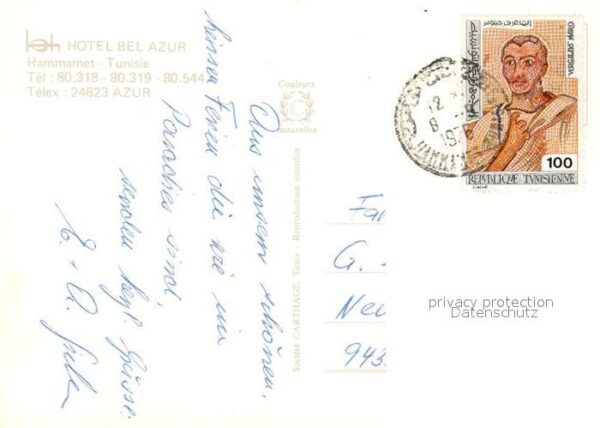 HOTEL BEL AZUR
Hammamet - Tunisie
Tél : 80.318 - 80.319 - 80.544
Télex : 24623 AZUR
Couleurs
naturelles
Société CARTHAGE, Tunis - Reproduction interdite
Aus unsern schönen,
heissen Ferien die wie im
Paradies sind,
senden herzl. Grüsse
E. + A.
Fa
G. -
Neu
943
VIRGILIUS MARO
100
REPUBLIQUE TUNISIENNE
privacy protection
Datenschutz